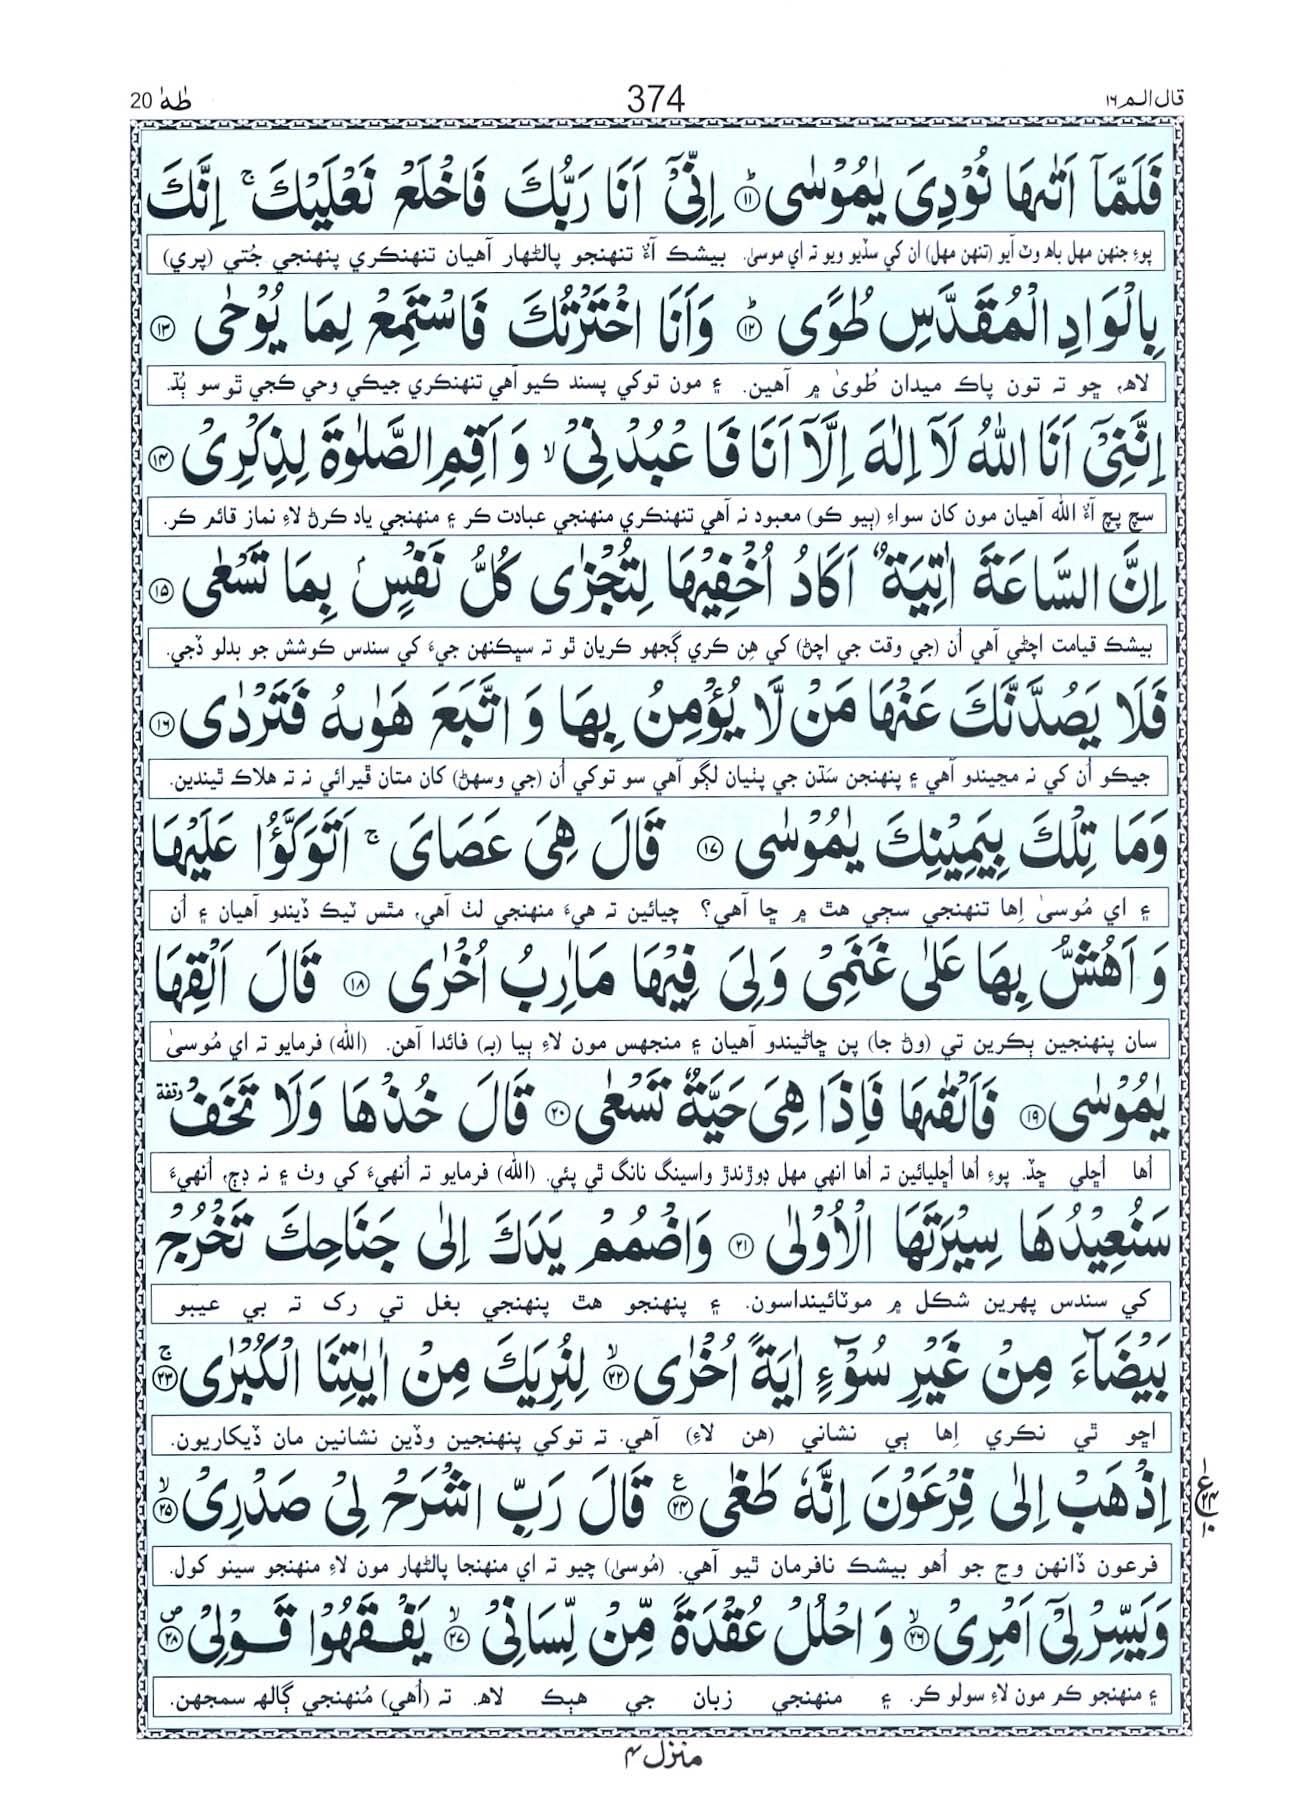 قال الم ١٦ 374 طٰهٰ 20
فَلَمَّاۤ اَتٰىهَا نُوْدِیَ یٰمُوْسٰی ؕ﴿۱۱﴾ اِنِّیْۤ اَنَا رَبُّكَ فَاخْلَعْ نَعْلَیْكَ ۚ اِنَّكَ
پوءِ جنهن مهل باھ وٽ آيو (تنهن مهل) ان کي سڏيو ويو تہ اي موسىٰ. بيشڪ آءٌ تنهنجو پالڻهار آهيان تنهنڪري پنهنجي جُتي (پري)
بِالْوَادِ الْمُقَدَّسِ طُوًی ؕ﴿۱۲﴾ وَ اَنَا اخْتَرْتُكَ فَاسْتَمِعْ لِمَا یُوْحٰی ﴿۱۳﴾
لاھ، ڇو تہ تون پاڪ ميدان طُوىٰ ۾ آهين. ۽ مون توکي پسند ڪيو آهي تنهنڪري جيڪي وحي ڪجي ٿو سو ٻُڌ.
اِنَّنِیْۤ اَنَا اللّٰهُ لَاۤ اِلٰهَ اِلَّاۤ اَنَا فَاعْبُدْنِیْ ۙ وَ اَقِمِ الصَّلٰوةَ لِذِكْرِیْ ﴿۱۴﴾
سچ پچ آءٌ الله آهيان مون کان سواءِ (ٻيو ڪو) معبود نہ آهي تنهنڪري منهنجي عبادت ڪر ۽ منهنجي ياد ڪرڻ لاءِ نماز قائم ڪر.
اِنَّ السَّاعَةَ اٰتِیَةٌ اَكَادُ اُخْفِیْهَا لِتُجْزٰی كُلُّ نَفْسٍۭ بِمَا تَسْعٰی ﴿۱۵﴾
بيشڪ قيامت اچڻي آهي اُن (جي وقت جي اچڻ) کي هِن ڪري ڳجهو ڪريان ٿو تہ سڀڪنهن جيءَ کي سندس ڪوشش جو بدلو ڏجي.
فَلَا یَصُدَّنَّكَ عَنْهَا مَنْ لَّا یُؤْمِنُ بِهَا وَ اتَّبَعَ هَوٰىهُ فَتَرْدٰی ﴿۱۶﴾
جيڪو اُن کي نہ مڃيندو آهي ۽ پنهنجن سَڌن جي پٺيان لڳو آهي سو توکي اُن (جي وسهڻ) کان متان ڦيرائي نہ تہ هلاڪ ٿيندين.
وَ مَا تِلْكَ بِیَمِیْنِكَ یٰمُوْسٰی ﴿۱۷﴾ قَالَ هِیَ عَصَایَ ۚ اَتَوَكَّؤُا عَلَیْهَا
۽ اي مُوسىٰ اِها تنهنجي سڄي هٿ ۾ ڇا آهي؟ چيائين تہ هيءَ منهنجي لٺ آهي، مٿس ٽيڪ ڏيندو آهيان ۽ اُن
وَ اَهُشُّ بِهَا عَلٰی غَنَمِیْ وَلِیَ فِیْهَا مَاٰرِبُ اُخْرٰی ﴿۱۸﴾ قَالَ اَلْقِهَا
سان پنهنجين ٻڪرين تي (وڻ جا) پن ڇاڻيندو آهيان ۽ منجهس مون لاءِ ٻيا (بہ) فائدا آهن. (الله) فرمايو تہ اي مُوسىٰ
یٰمُوْسٰی ﴿۱۹﴾ فَاَلْقٰىهَا فَاِذَا هِیَ حَیَّةٌ تَسْعٰی ﴿۲۰﴾ قَالَ خُذْهَا وَلَا تَخَفْ وقفة
اُها اُڇلي ڇڏ. پوءِ اُها اُڇليائين تہ اُها انهي مهل ڊوڙندڙ واسينگ نانگ ٿي پئي. (الله) فرمايو تہ اُنهيءَ کي وٺ ۽ نہ ڊڄ، اُنهيءَ
سَنُعِیْدُهَا سِیْرَتَهَا الْاُوْلٰی ﴿۲۱﴾ وَاضْمُمْ یَدَكَ اِلٰی جَنَاحِكَ تَخْرُجْ
کي سندس پهرين شڪل ۾ موٽائينداسون. ۽ پنهنجو هٿ پنهنجي بغل تي رک تہ بي عيبو
بَیْضَآءَ مِنْ غَیْرِ سُوْٓءٍ اٰیَةً اُخْرٰی ۙ﴿۲۲﴾ لِنُرِیَكَ مِنْ اٰیٰتِنَا الْكُبْرٰی ۚ﴿۲۳﴾
اڇو ٿي نڪري اِها ٻي نشاني (هن لاءِ) آهي. تہ توکي پنهنجين وڏين نشانين مان ڏيکاريون.
اِذْهَبْ اِلٰی فِرْعَوْنَ اِنَّهٗ طَغٰی ﴿۲۴﴾ ع قَالَ رَبِّ اشْرَحْ لِیْ صَدْرِیْ ۙ﴿۲۵﴾
فرعون ڏانهن وڃ جو اُهو بيشڪ نافرمان ٿيو آهي. (مُوسىٰ) چيو تہ اي منهنجا پالڻهار مون لاءِ منهنجو سينو کول.
وَیَسِّرْ لِیْۤ اَمْرِیْ ۙ﴿۲۶﴾ وَ احْلُلْ عُقْدَةً مِّنْ لِّسَانِیْ ۙ﴿۲۷﴾ یَفْقَهُوْا قَوْلِیْ ۪﴿۲۸﴾
۽ منهنجو ڪم مون لاءِ سولو ڪر. ۽ منهنجي زبان جي هٻڪ لاھ. تہ (اُهي) مُنهنجي ڳالهہ سمجهن.
منزل ۴